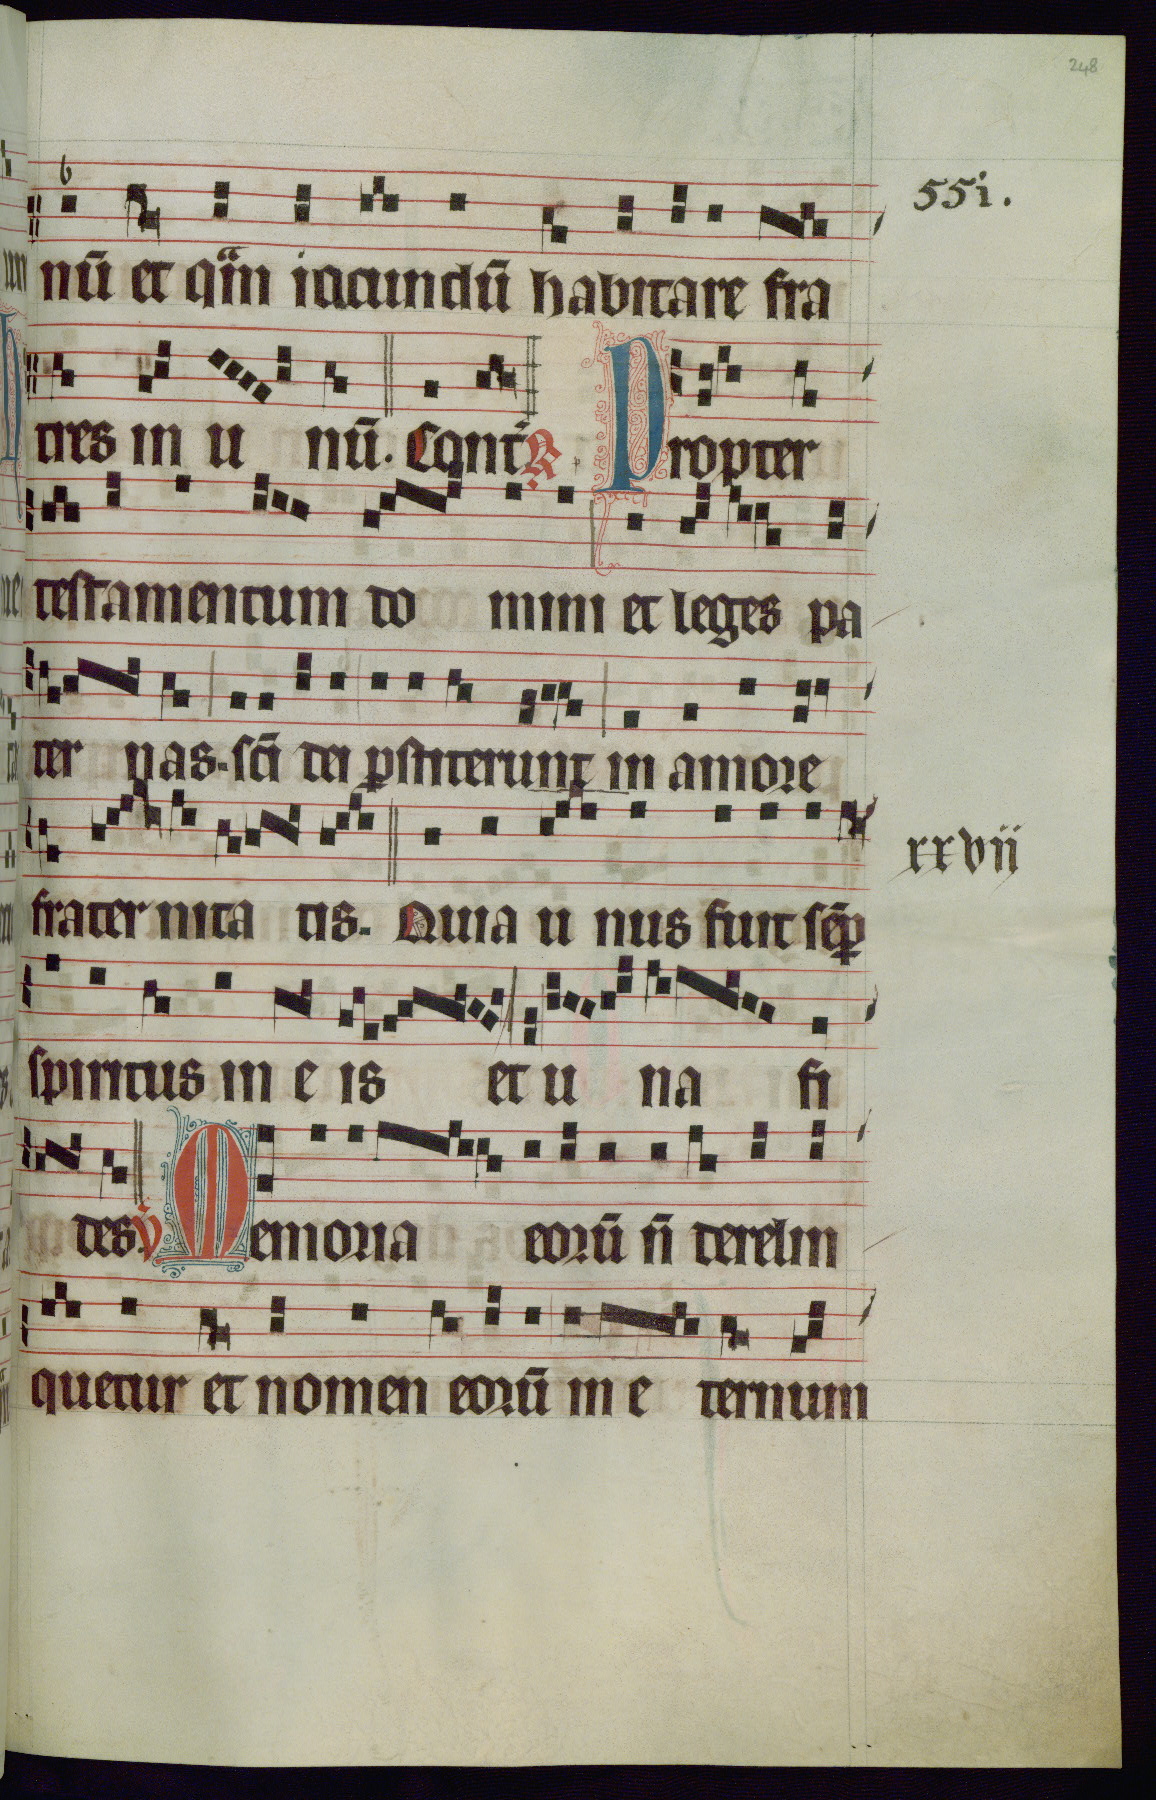 248
b
55i.
nū et qm̄ iocundū habitare fra
tres in u nū. Cont̄ ℟ Propter
testamentum do mini et leges pa
ter nas. sc̄i dei ꝑstiterunt in amore
frater nita tis. Quia u nus fuit semꝑ
xxvii
spiritus in e is et u na fi
des ℣ Memoria eorū n̄ derelin
quetur et nomen eorū in e ternum